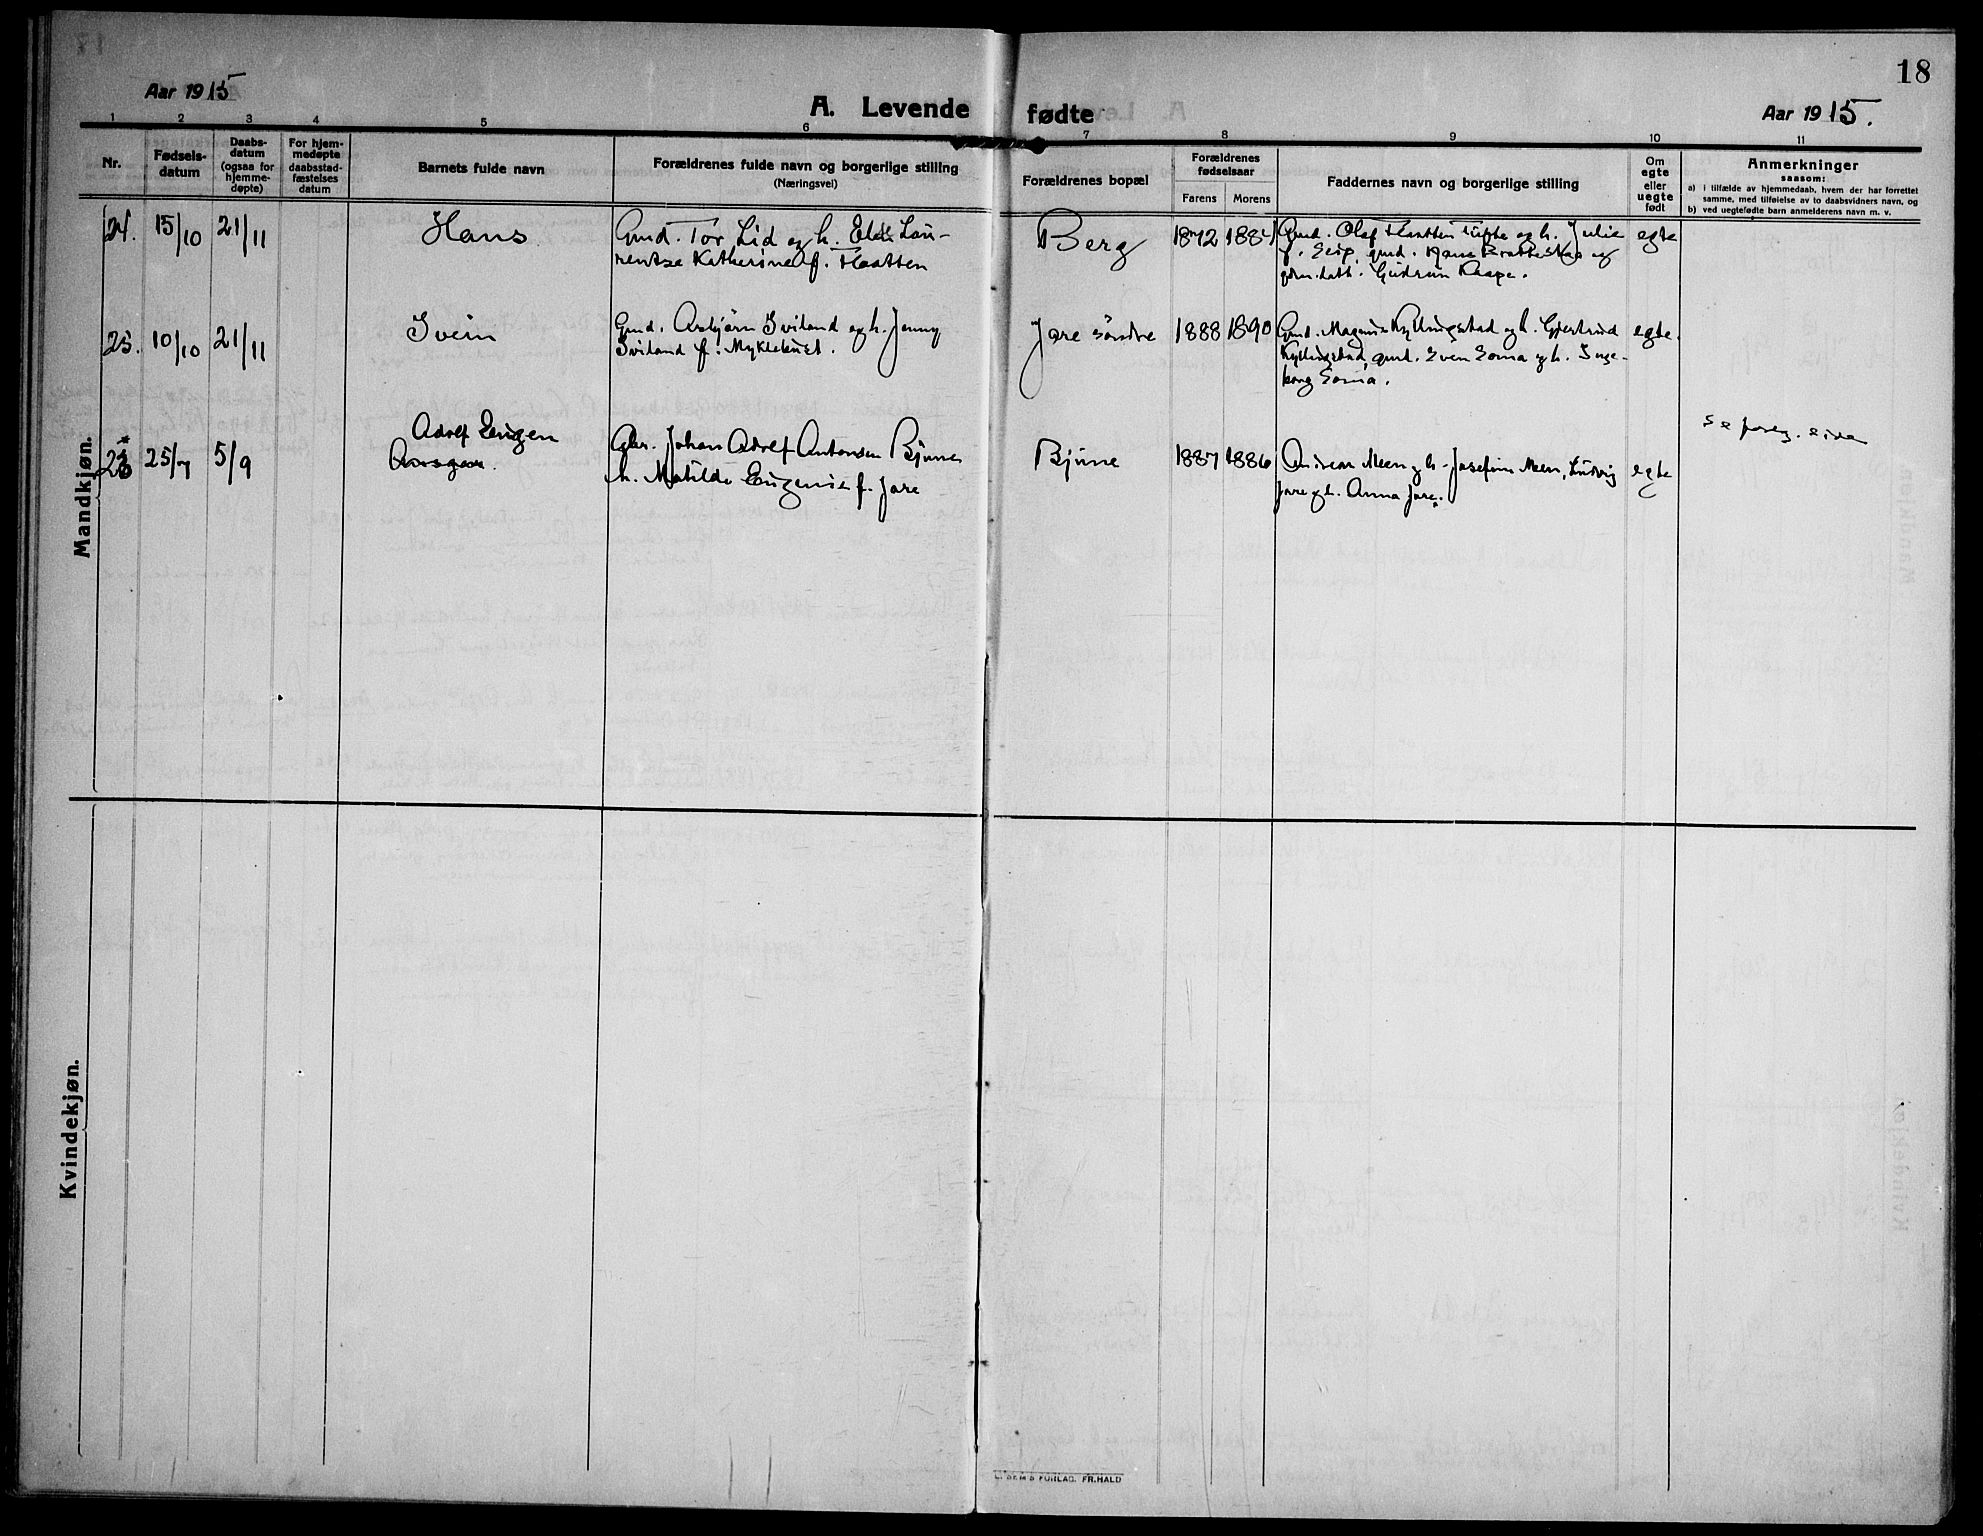 18
Aar 1915
A. Levende fødte
Aar 1915.
1 2 3 4 5 6 7 8 9 10 11
Nr.
Fødsels-
datum
Daabs-
datum
(ogsaa for
hjemme-
døpte)
For hjem-
medøpte
daabsstad-
fæstelses
datum
Barnets fulde navn
Forældrenes fulde navn og borgerlige stilling
(Næringsvei)
Forældrenes bopæl
Forældrenes
fødselsaar
Farens Morens
Faddernes navn og borgerlige stilling
Om
egte
eller
uegte
født
Anmerkninger
saasom:
a) i tilfælde av hjemmedaab, hvem der har forrettet
samme, med tilføielse av to daabsvidners navn, og
b) ved uegtefødte barn anmelderens navn m. v.
Mandkjøn.
24. 15/10 21/11 Hans Gmd. Tor Lid og h. Lau- Berg 1872 Gmd. Olaf Tufte og h. Julie egte
rentse Katherine f. Haatten
f. gmd. og
Gudrun Kaape.
25. 10/10 21/11 Svein Gmd. Asbjörn Sviland og h. Jenny Jare söndre 1888 1890 Gmd. Magnus Kyllingstad og h. Gjertrud egte.
Sviland f. Myklebust.
Kyllingstad, gmd. Sven Soma og h. Inge-
borg Soma.
Adolf Eugen
26 25/7 5/9 Ansgar. Gbr. Johan Adolf Antonsen Bjune Bjune 1887 1886 Andreas Meen og h. Josefine Meen, Ludvig egte
h. Matilde Eugenie f. Jare
Jare og h. Anna Jare.
se foreg. side
Kvindekjøn.
L. SEM'S FORLAG. FR.HALD